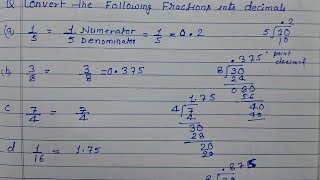 Q Convert the Following Fractions into decimals
(a) 1/5 = 1/5 Numerator/Denominator = 1/5 = 0.2
.2
5 ) 10
10
(b) 3/8 = 3/8 = 0.375
.375 point decimal
8 ) 30
24
060
56
40
40
c 7/4 = 7/4
1.75
4 ) 7
4
30
28
20
20
d 1/16 = 1.75
.875
8 )